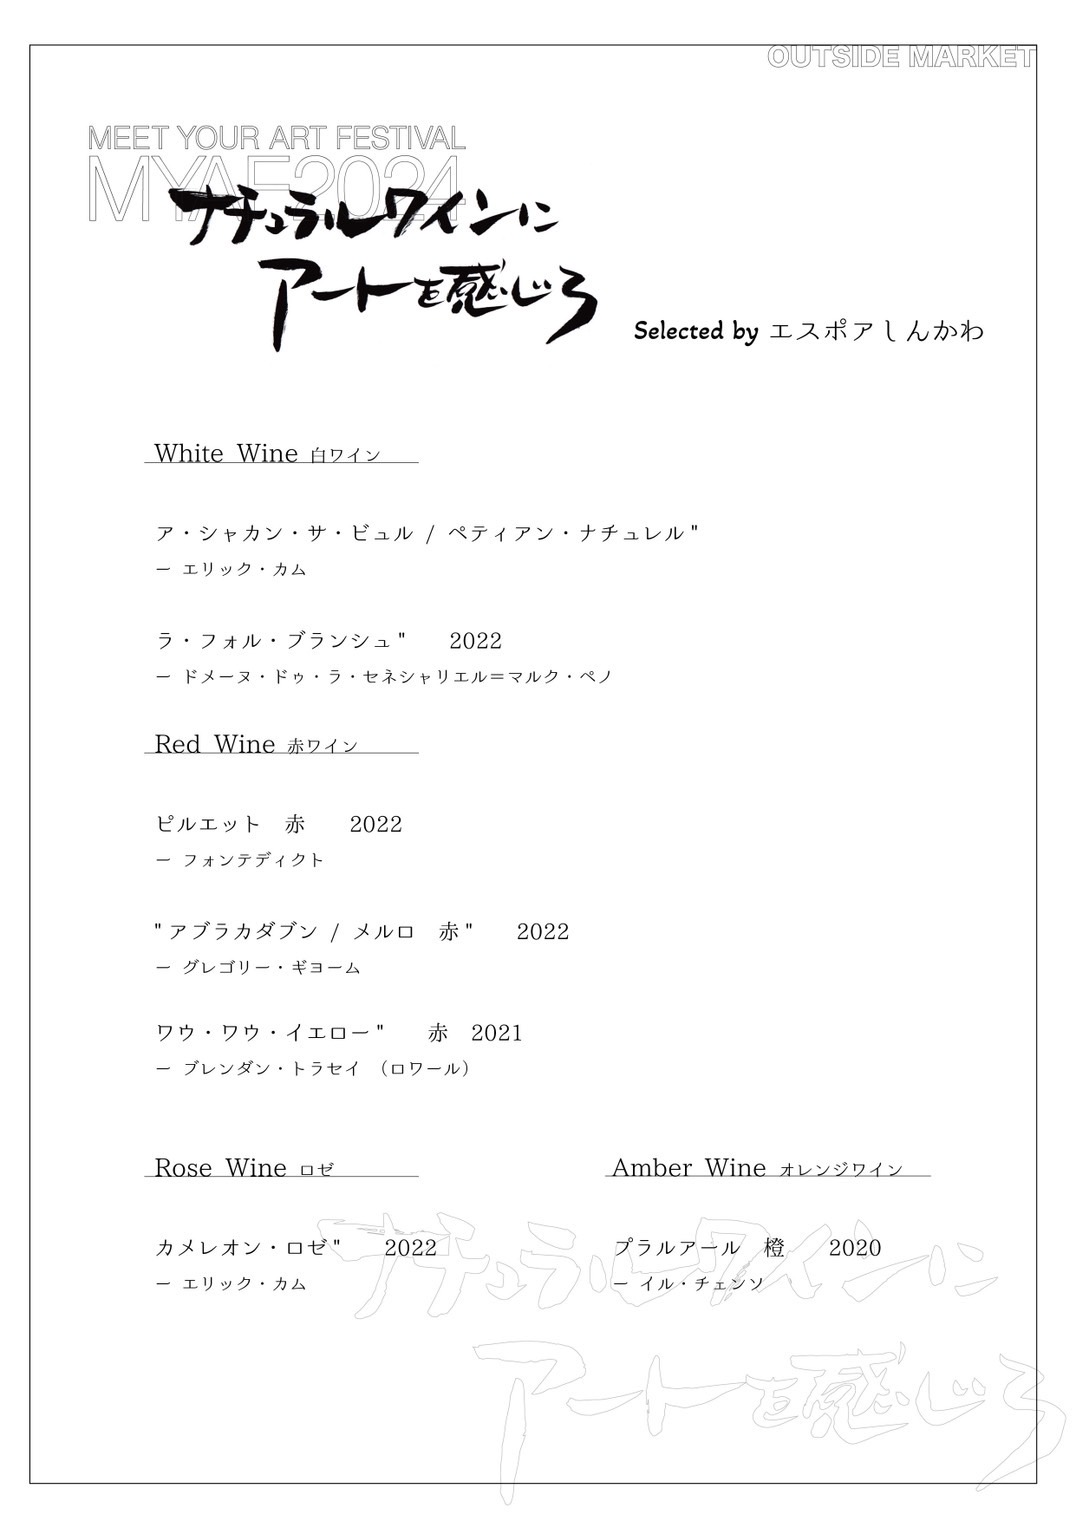 OUTSIDE MARKET
MEET YOUR ART FESTIVAL
MYAF2024
ナチュラルワインに
アートを感じろ
Selected by エスポアしんかわ
White Wine 白ワイン
ア・シャカン・サ・ビュル / ペティアン・ナチュレル"
ー エリック・カム
ラ・フォル・ブランシュ"　2022
ー ドメーヌ・ドゥ・ラ・セネシャリエル＝マルク・ペノ
Red Wine 赤ワイン
ピルエット　赤　2022
ー フォンテディクト
"アブラカダブン / メルロ　赤"　2022
ー グレゴリー・ギヨーム
ワウ・ワウ・イエロー"　赤　2021
ー ブレンダン・トラセイ （ロワール）
Rose Wine ロゼ
カメレオン・ロゼ"　2022
ー エリック・カム
Amber Wine オレンジワイン
プラルアール　橙　2020
ー イル・チェンソ
ナチュラルワインに
アートを感じろ